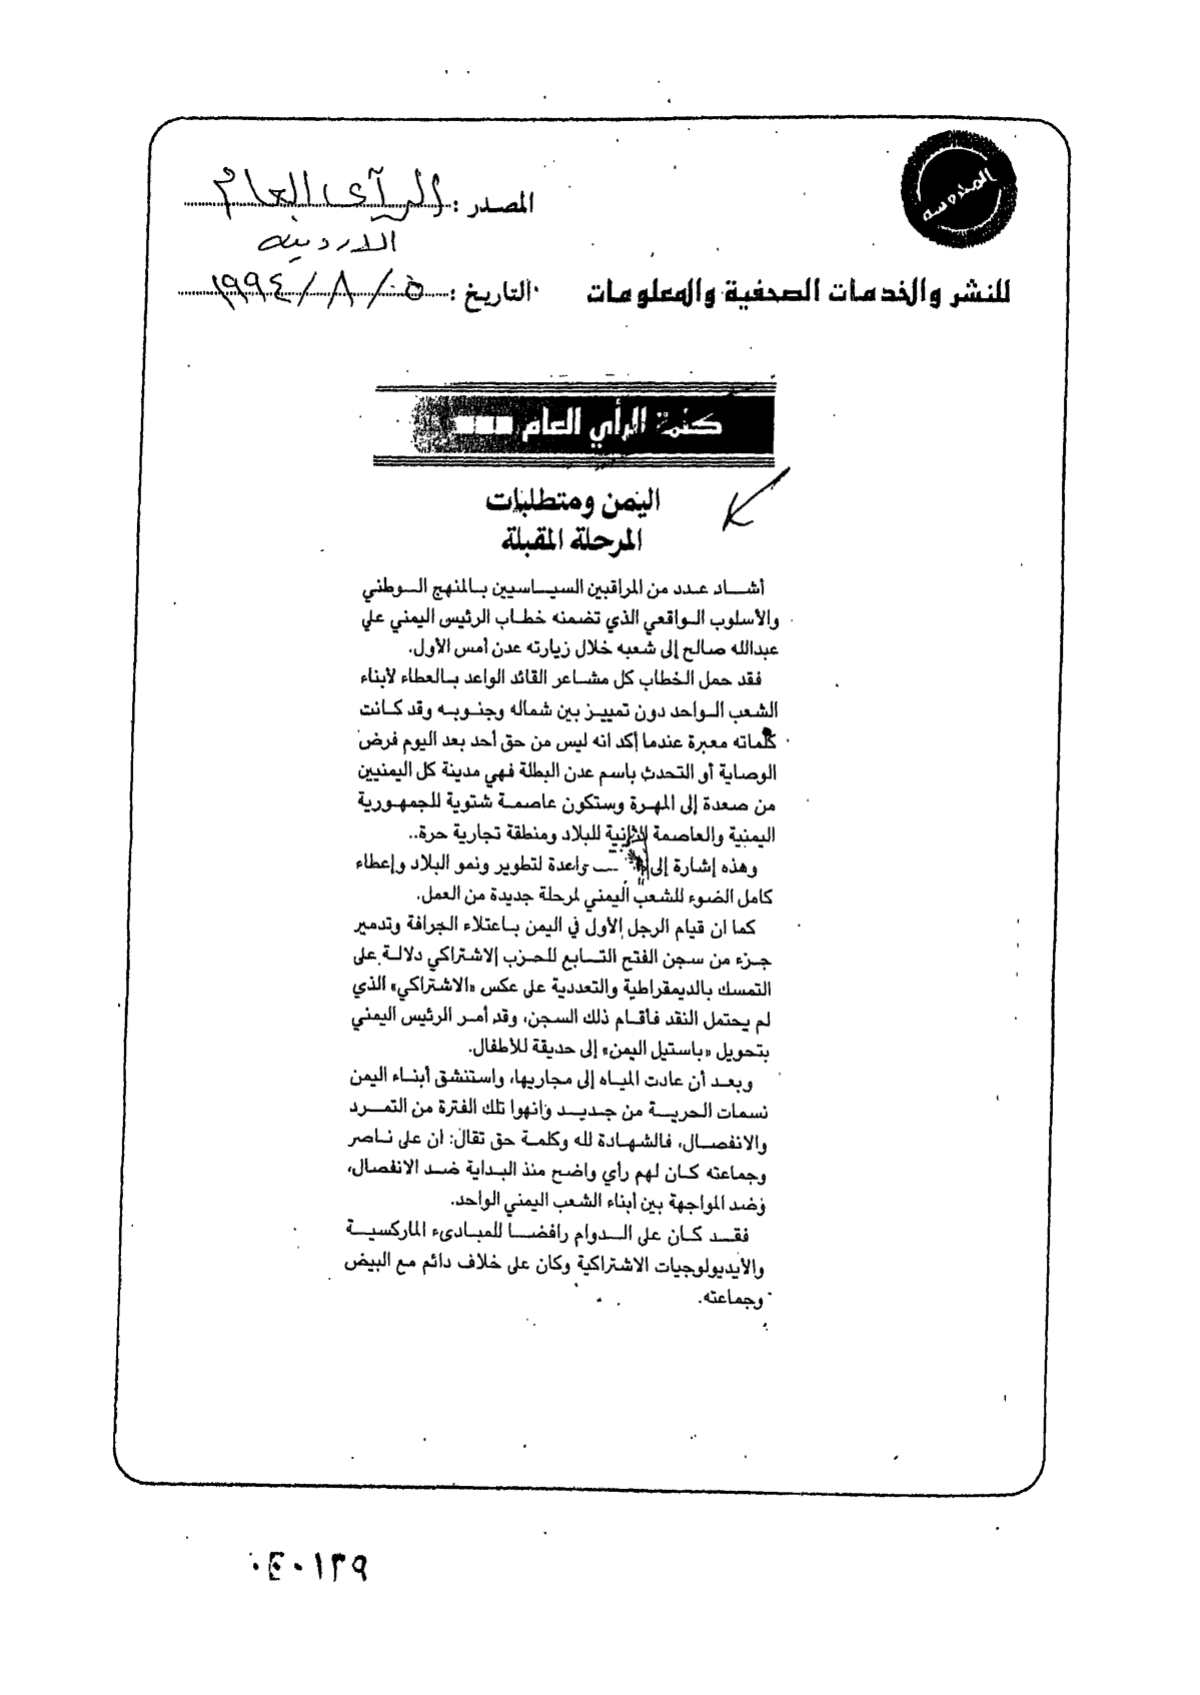 المندوسه
المصدر : الرآى العام
الاردنيه
للنشر والخدمات الصحفية والمعلومات
التاريخ : ٥ / ٨ / ١٩٩٤
كلمة الرأي العام
اليمن ومتطلبات
المرحلة المقبلة
أشاد عدد من المراقبين السياسيين بالمنهج الوطني
والأسلوب الواقعي الذي تضمنه خطاب الرئيس اليمني علي
عبدالله صالح إلى شعبه خلال زيارته عدن أمس الأول.
فقد حمل الخطاب كل مشاعر القائد الواعد بالعطاء لأبناء
الشعب الواحد دون تمييز بين شماله وجنوبه وقد كانت
كلماته معبرة عندما أكد انه ليس من حق أحد بعد اليوم فرض
الوصاية أو التحدث باسم عدن البطلة فهي مدينة كل اليمنيين
من صعدة إلى المهرة وستكون عاصمة شتوية للجمهورية
اليمنية والعاصمة الثانية للبلاد ومنطقة تجارية حرة..
وهذه إشارة إلى واعدة لتطوير ونمو البلاد وإعطاء
كامل الضوء للشعب اليمني لمرحلة جديدة من العمل.
كما ان قيام الرجل الأول في اليمن باعتلاء الجرافة وتدمير
جزء من سجن الفتح التابع للحزب الاشتراكي دلالة على
التمسك بالديمقراطية والتعددية على عكس «الاشتراكي» الذي
لم يحتمل النقد فأقام ذلك السجن، وقد أمر الرئيس اليمني
بتحويل «باستيل اليمن» إلى حديقة للأطفال.
وبعد أن عادت المياه إلى مجاريها، واستنشق أبناء اليمن
نسمات الحرية من جديد وانهوا تلك الفترة من التمرد
والانفصال، فالشهادة لله وكلمة حق تقال: ان علي ناصر
وجماعته كان لهم رأي واضح منذ البداية ضد الانفصال،
وضد المواجهة بين أبناء الشعب اليمني الواحد.
فقد كان على الدوام رافضا للمبادىء الماركسية
والأيديولوجيات الاشتراكية وكان على خلاف دائم مع البيض
وجماعته.
٠٤٠١٣٩